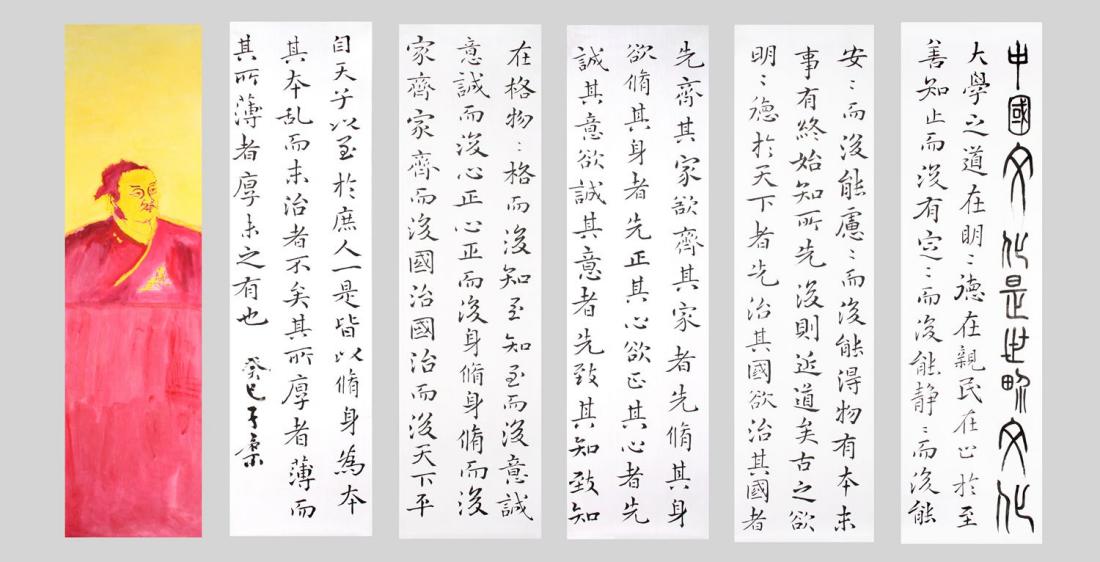 中國文化是世界文化
大學之道在明〻德在親民在止於至
善知止而後有定〻而後能静〻而後能
安〻而後能慮〻而後能得物有本末
事有終始知所先後則近道矣古之欲
明〻德於天下者先治其國欲治其國者
先齊其家欲齊其家者先脩其身
欲脩其身者先正其心欲正其心者先
誠其意欲誠其意者先致其知致知
在格物〻格而後知至知至而後意誠
意誠而後心正心正而後身脩身脩而後
家齊家齊而後國治國治而後天下平
自天子以至於庶人一是皆以脩身為本
其本乱而末治者不矣其所厚者薄而
其所薄者厚未之有也
癸巳